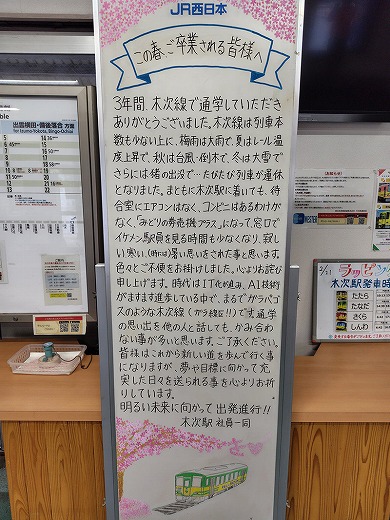 JR西日本
この春、ご卒業される皆様へ
3年間、木次線で通学していただき
ありがとうございました。木次線は列車本
数も少ない上に、梅雨は大雨で、夏はレール温
度上昇で、秋は台風・倒木で、冬は大雪で
さらには猪の出没で…たびたび列車が運休
となりました。まともに木次駅に着いても、待
合室にエアコンはなく、コンビニはあるわけが
なく、「みどりの券売機プラス」になって、窓口で
イケメン駅員を見る時間も少なくなり、寂し
い寒い(時には)暑い思いをされた事と思います。
色々とご不便をお掛けしました。心よりお詫び
申し上げます。時代はIT化が進み、AI技術が
ますます進歩している中で、まるでガラパゴ
スのような木次線(ガラ線!!)です。通学
の思い出を他の人と話しても、かみ合わ
ない事が多いと思います。ご了承ください。
皆様はこれから新しい道を歩んで行く事
になりますが、夢や目標に向かって充
実した日々を送られる事を心よりお祈
りしています。
明るい未来に向かって出発進行!!
木次駅 社員一同
出雲横田・備後落合 方面
for Izumo-Yokota, Bingo-Ochiai
木次駅発車時
たたら
だんだん
さくら
しんわ